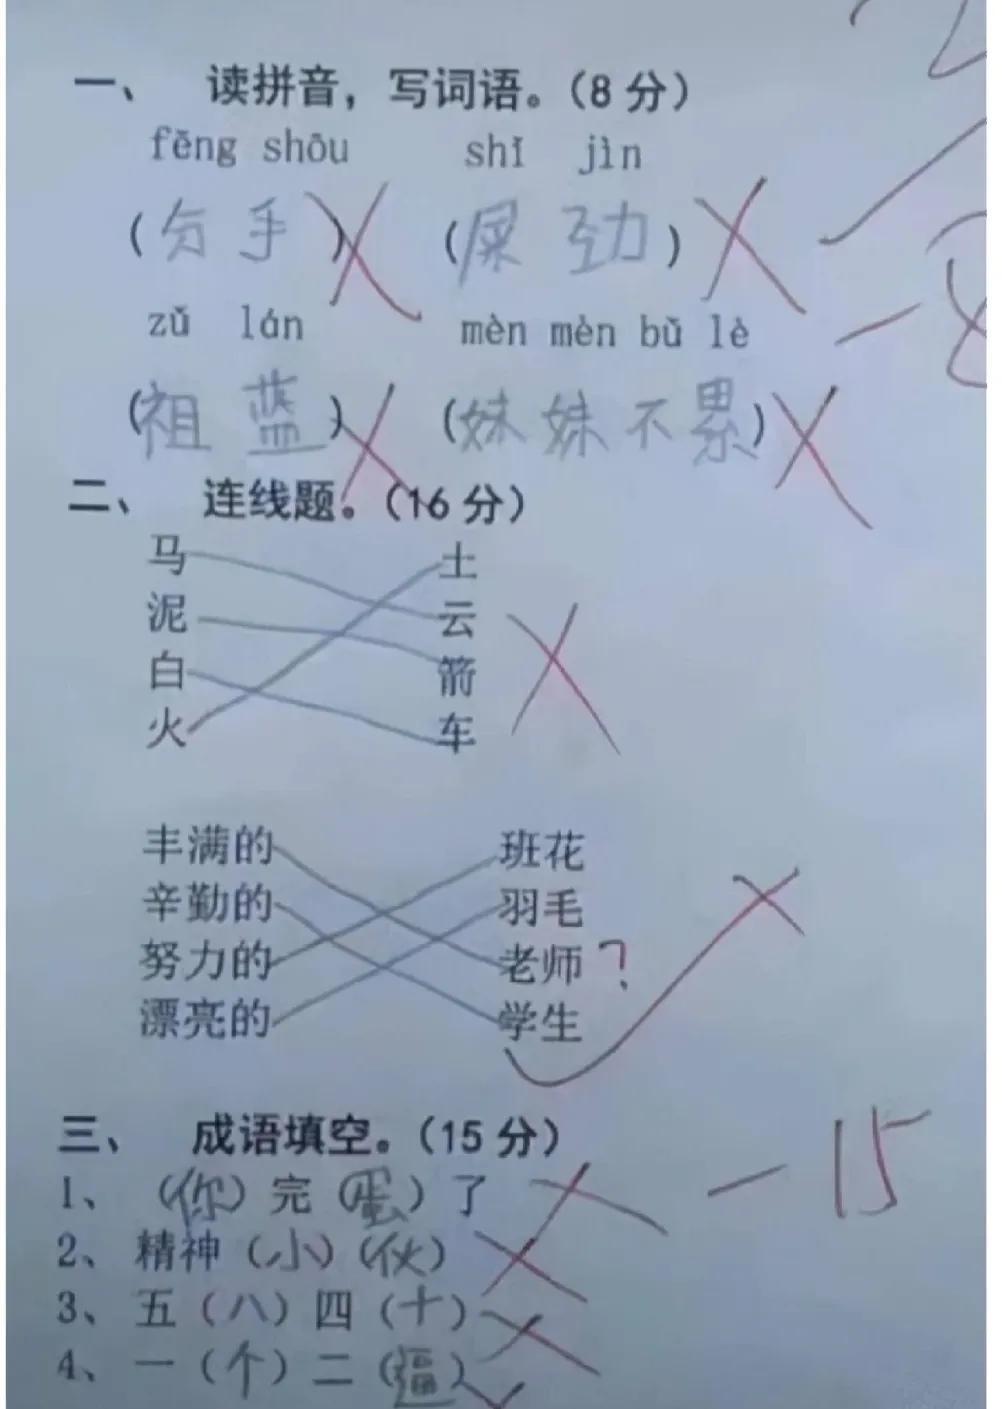 一、 读拼音，写词语。（8 分）
fēng shōu shǐ jìn
（分 手）（屎 劲）
zǔ lán mèn mèn bǔ lè
（祖 蓝）（妹 妹 不 累）
二、 连线题。（16 分）
马 土
泥 云
白 箭
火 车
丰满的 班花
辛勤的 羽毛
努力的 老师 ?
漂亮的 学生
三、 成语填空。（15 分） -15
1、（你）完（蛋）了
2、精神（小）（伙）
3、五（八）四（十）
4、一（个）二（逼）